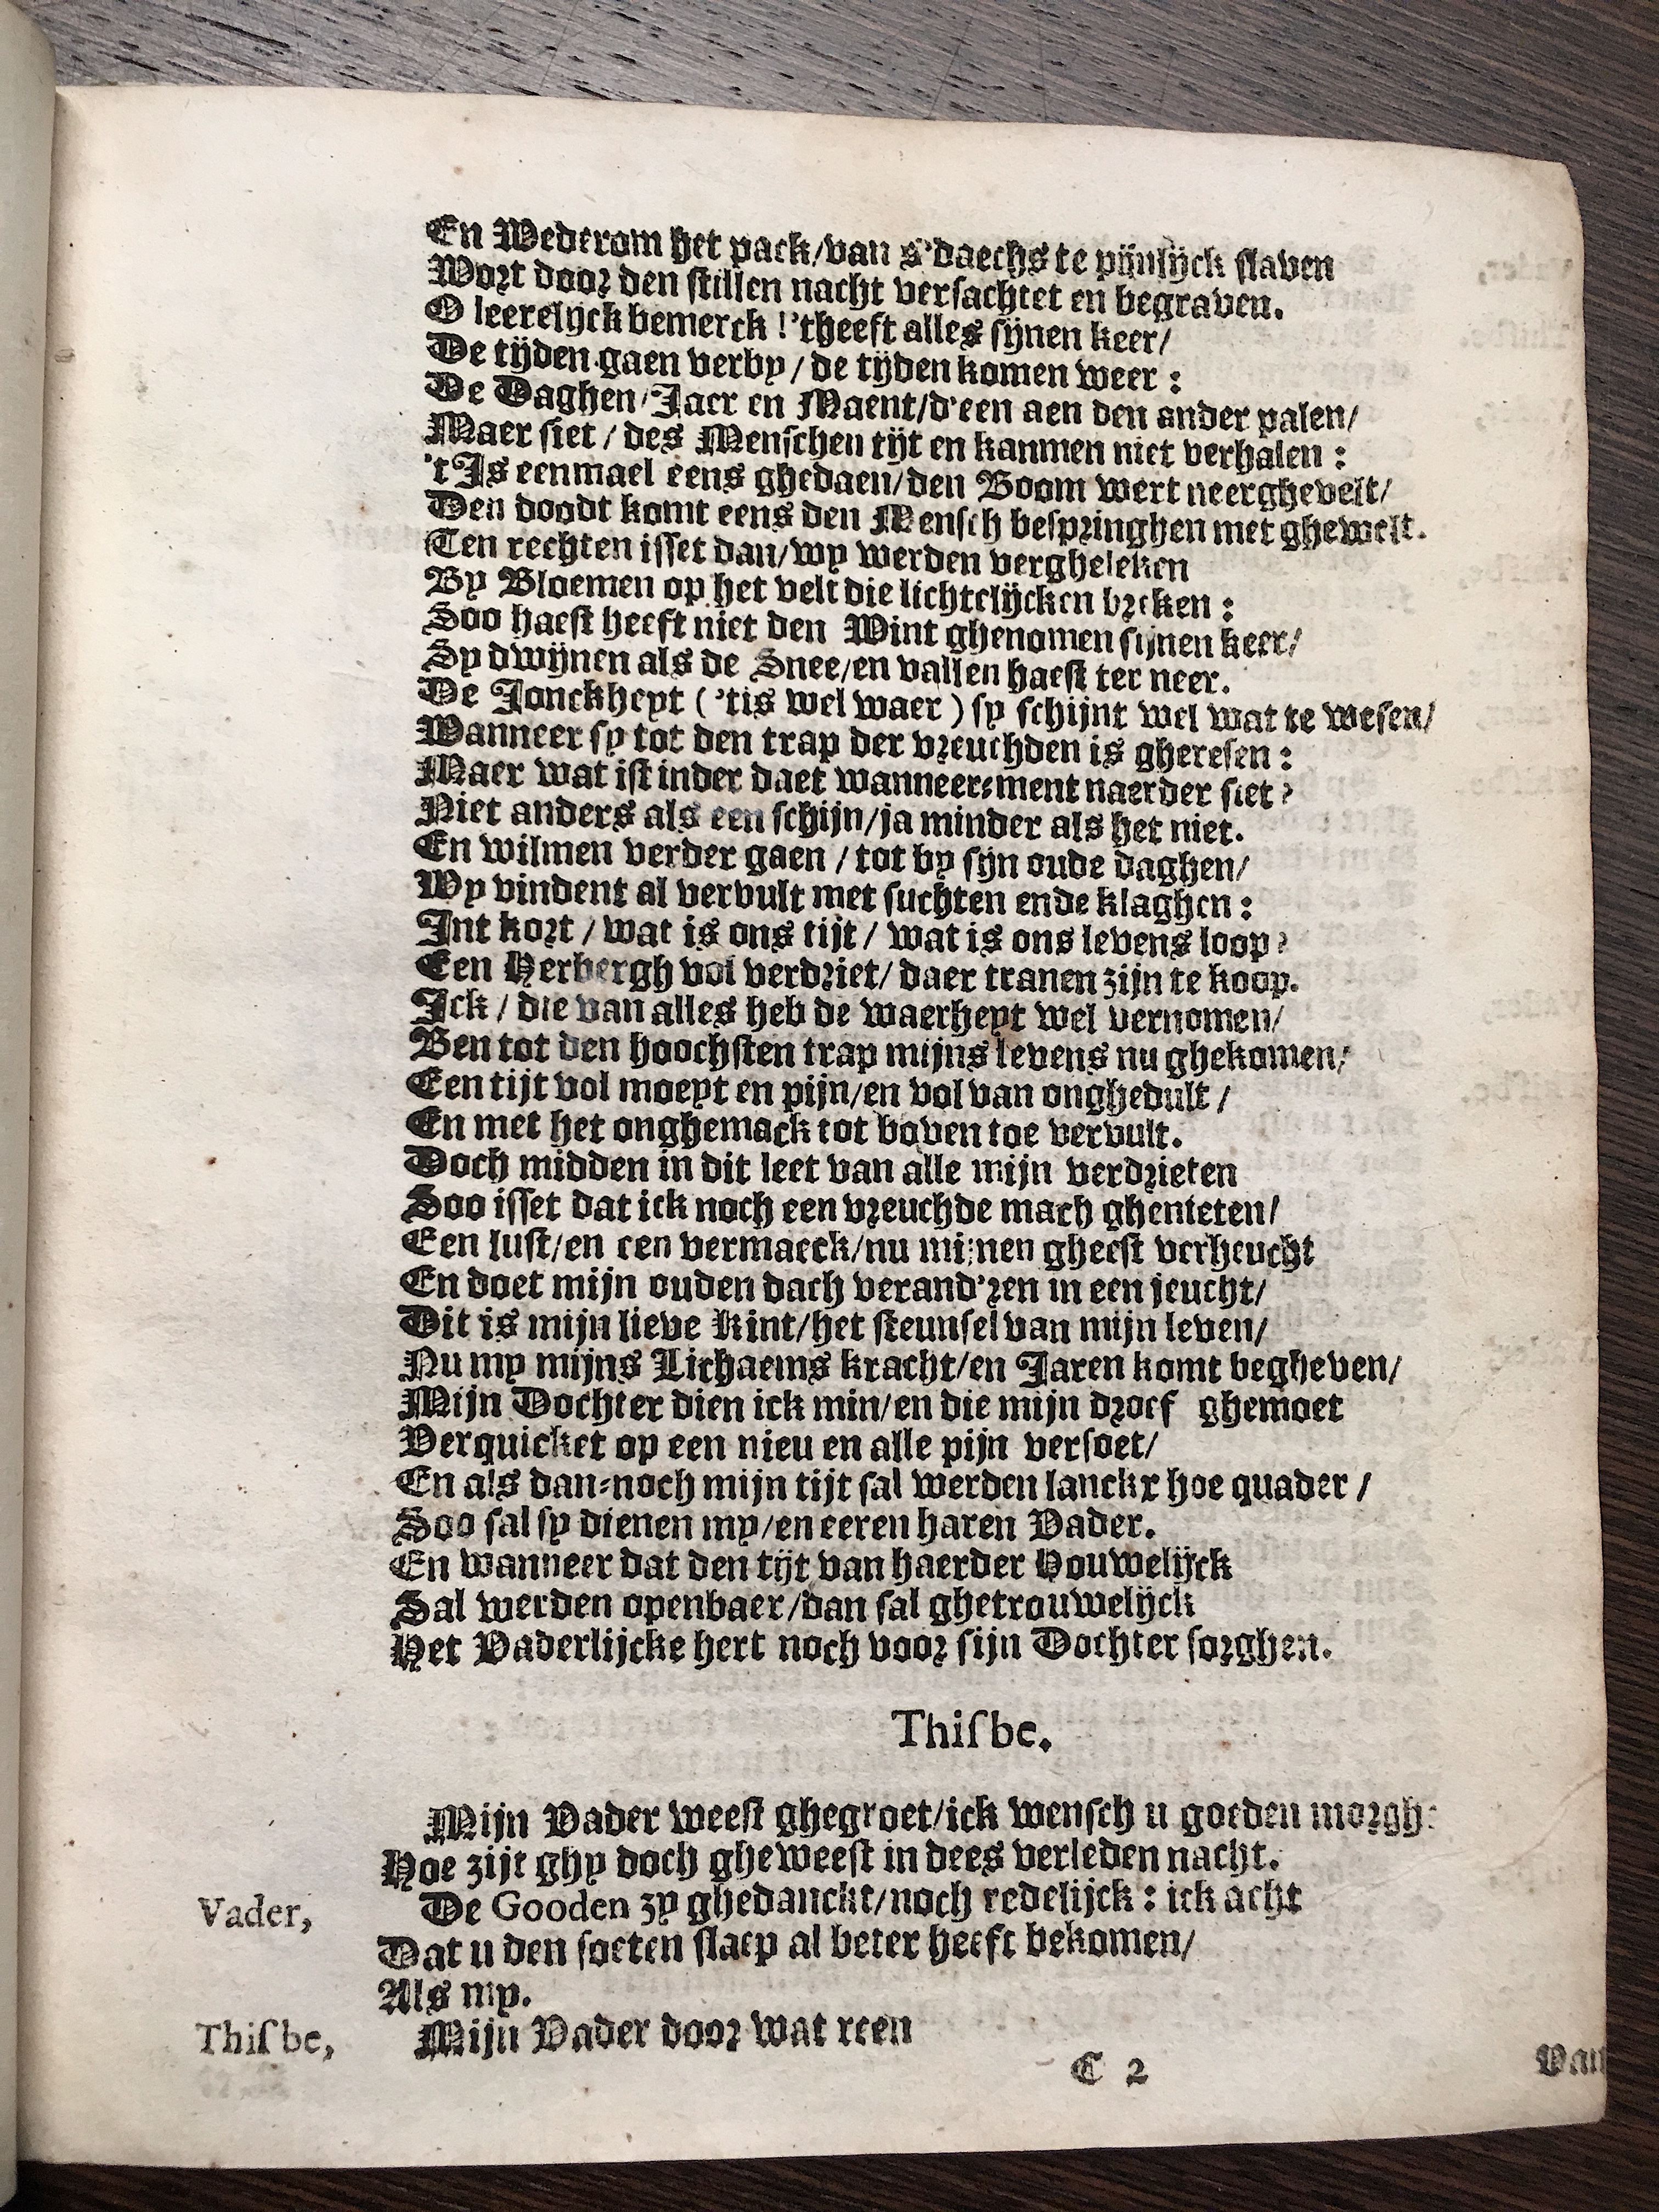 En Wederom het pack/van s'daechs te pijnlijck slaven
Wort door den stillen nacht versachtet en begraven.
O leerelijck bemerck !'theeft alles sijnen keer/
De tijden gaen verby / de tijden komen weer :
De Daghen/Jaer en Maent/d'een aen den ander palen/
Maer siet / des Menschen tijt en kanmen niet verhalen :
't Is eenmael eens ghedaen/den Boom wert neerghevelt/
Den doodt komt eens den Mensch bespringhen met ghewelt.
Ten rechten isset dan/wy werden vergheleken
By Bloemen op het velt die lichtelijcken breken :
Soo haest heeft niet den Wint ghenomen sijnen keer/
Sy dwijnen als de Snee/en vallen haest ter neer.
De Jonckheyt ('tis wel waer ) sy schijnt wel wat te wesen/
Wanneer sy tot den trap der vreuchden is gheresen :
Maer wat ist inder daet wanneer-ment naerder siet?
Niet anders als een schijn/ja minder als het niet.
En wilmen verder gaen / tot by sijn oude daghen/
Wy vindent al vervult met suchten ende klaghen :
Int kort / wat is ons tijt / wat is ons levens loop?
Een Herbergh vol verdriet/ daer tranen zijn te koop.
Ick / die van alles heb de waerheyt wel vernomen/
Ben tot den hoochsten trap mijns levens nu ghekomen/
Een tijt vol moeyt en pijn/en vol van onghedult /
En met het onghemack tot boven toe vervult.
Doch midden in dit leet van alle mijn verdrieten
Soo isset dat ick noch een vreuchde mach ghenieten/
Een lust/en een vermaeck/nu mijnen gheest verheucht
En doet mijn ouden dach verand'ren in een jeucht/
Dit is mijn lieve Kint/het steunsel van mijn leven/
Nu my mijns Lichaems kracht/en Jaren komt begheven/
Mijn Dochter dien ick min/en die mijn droef ghemoet
Verquicket op een nieu en alle pijn versoet/
En als dan-noch mijn tijt sal werden lanckx hoe quader /
Soo sal sy dienen my/en eeren haren Vader.
En wanneer dat den tijt van haerder Houwelijck
Sal werden openbaer/dan sal ghetrouwelijck
Het Vaderlijcke hert noch voor sijn Dochter sorghen.
Thisbe.
Mijn Vader weest ghegroet/ick wensch u goeden morgh:
Hoe zijt ghy doch gheweest in dees verleden nacht.
Vader, De Gooden zy ghedanckt/noch redelijck : ick acht
Dat u den soeten slaep al beter heeft bekomen/
Als my.
Thisbe, Mijn Vader door wat reen
C 2 Van